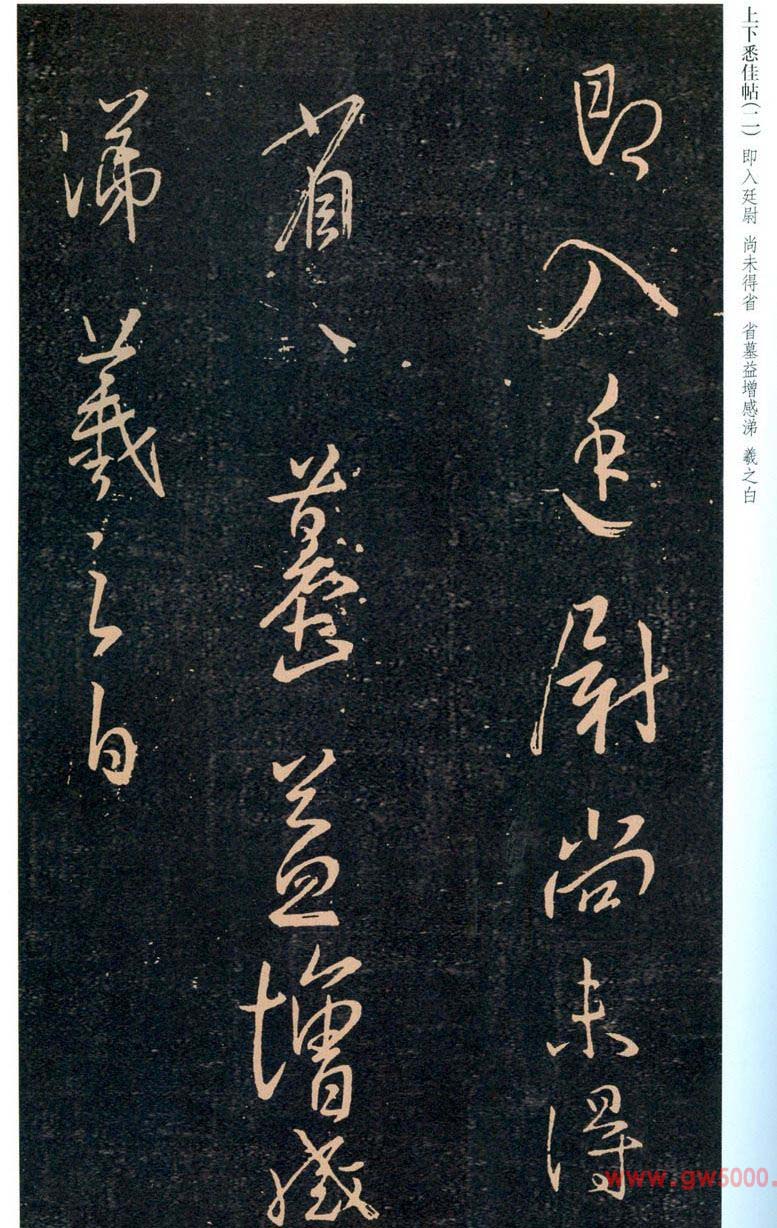 上下悉佳帖(二) 即入廷尉 尚未得省 省墓益增感涕 羲之白
即入廷尉尚未得
省〻墓益增感
涕羲之白
www.gw5000.